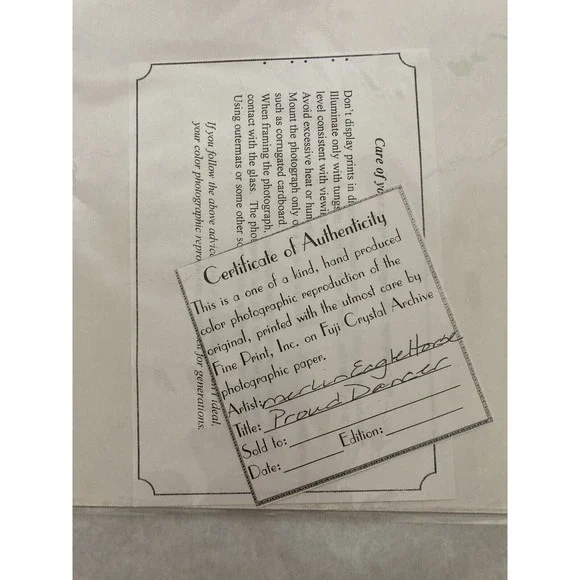 Certificate of Authenticity
This is a one of a kind, hand produced
color photographic reproduction of the
original, printed with the utmost care by
Fine Print, Inc. on Fuji Crystal Archive
photographic paper.
Artist: Merlin Eagle Horse
Title: Proud Dancer
Sold to:
Edition:
Date:
Care of
Don't display prints in
Illuminate only with
level consistent with
Avoid excessive heat or
Mount the photograph only
such as corrugated cardboard
When framing the photograph,
contact with the glass. The
Using outermats or some other
If you follow the above
your color photographic
ideal,
for generations.